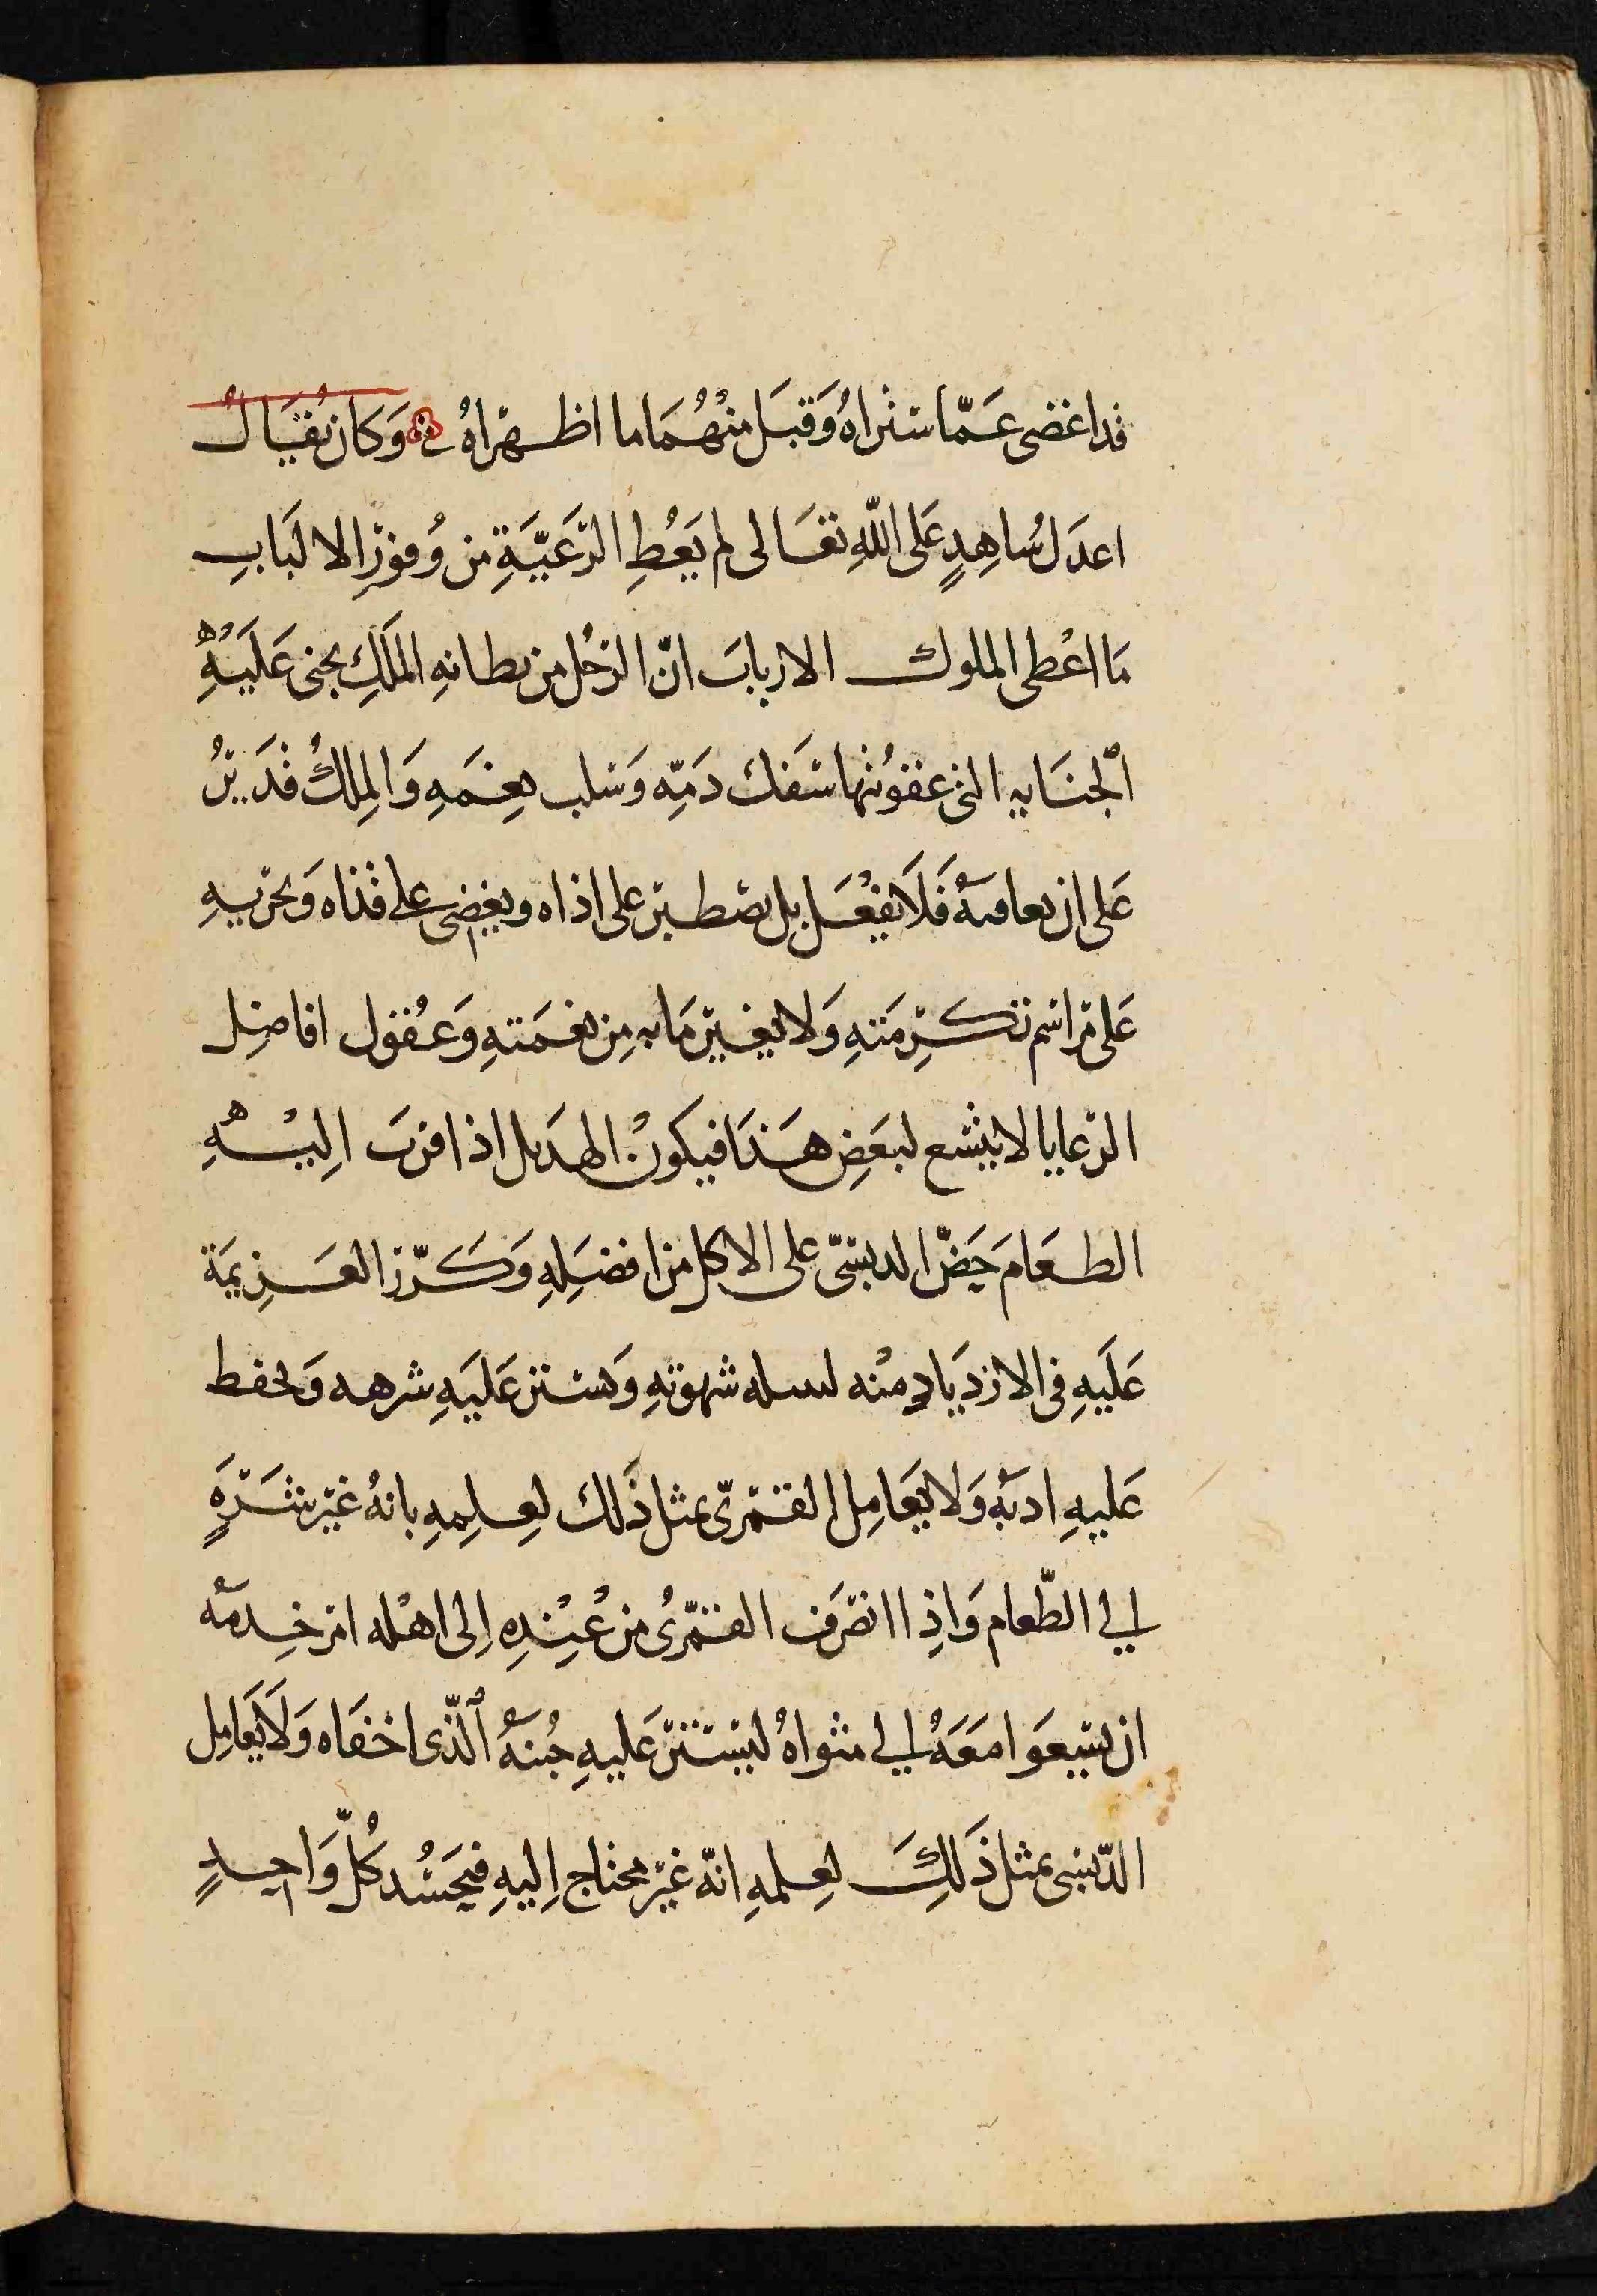 قد اغضى عَمّا سَتَراهُ وَقبَل منْهُمَا ما اظهراهُ وَكان يُقَالُ
اعدَل شاهِدٍ عَلى اللّهِ تعَالى لم يَعُطِ الرَّعيَّةِ من وُفور الالبَابِ
مَا اعْطى الملوك الارباب انّ الرجُل من بطانهِ الملَكِ يجنى عَلَيهِ
الجنَايه التى عقوُبتها سَفك دَمِّه وَسَلب نِعَمَهِ وَالمِلكُ قدَيرُ
عَلى ان يعاقبهُ فَلَا يفْعَل بل يصْطبر على اذاه ويغضى على قذاه وَيحريهِ
عَلى مراسم تكرِمَتهِ وَلا يغير مَا به مِن نعمَتهِ وَعُقول افاضِل
الرعايا لا يتسع لبَعضِ هَذَا فيكونُ الهدَيل اذا قربَ اليْهِ
الطعَامَ حَضّ الدبسىّ على الاكل من افضَلِهِ وَكَرّر العَزِيمَة
عَلَيهِ فى الازديَادِ منْه شهوتهِ وَيستر عَليَهِ شرهه وَيحفظ
عَليهِ ادبَهُ وَلا يعَامِل القمرىّ بمثل ذَلك لعِلِمهِ بانهُ غيَر شَرَهٍ
الي الطّعام وَاذِا انصَرَف القمّرىُ من عُنِدِه اِلى اهْله امر خِدمهُ
ان يسَعَوا مَعَهُ الي مثواهُ ليَستتر عَليهِ جُبنهُ الّذى اخفَاه وَلَا يَعامِل
الدّبسى بمثل ذَلكِ لعِلمهِ انّه غيَر محتاج اِليهِ فيَحَسُد كلُّ وَاحِدٍ